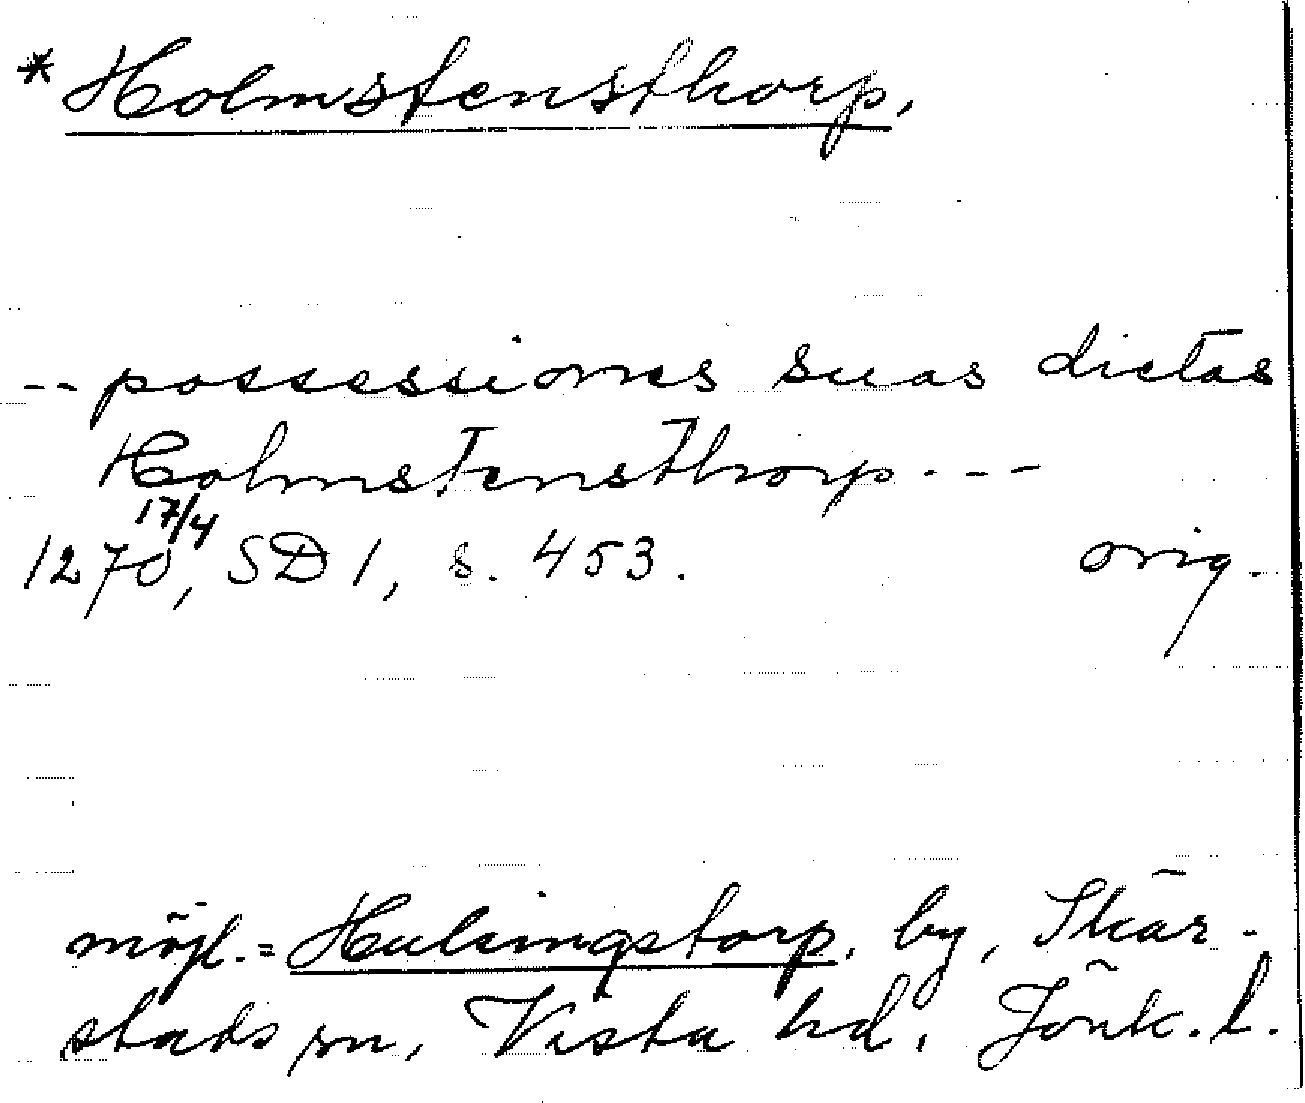 * Holmstensthorp.
-- possessiones suas dictas
Holmstensthorp - - -
17/4
1270, SD 1, s. 453. orig.
möjl. = Hulsingstorp, by, Skär-
stads sn, Vista hd, Jönk. l.